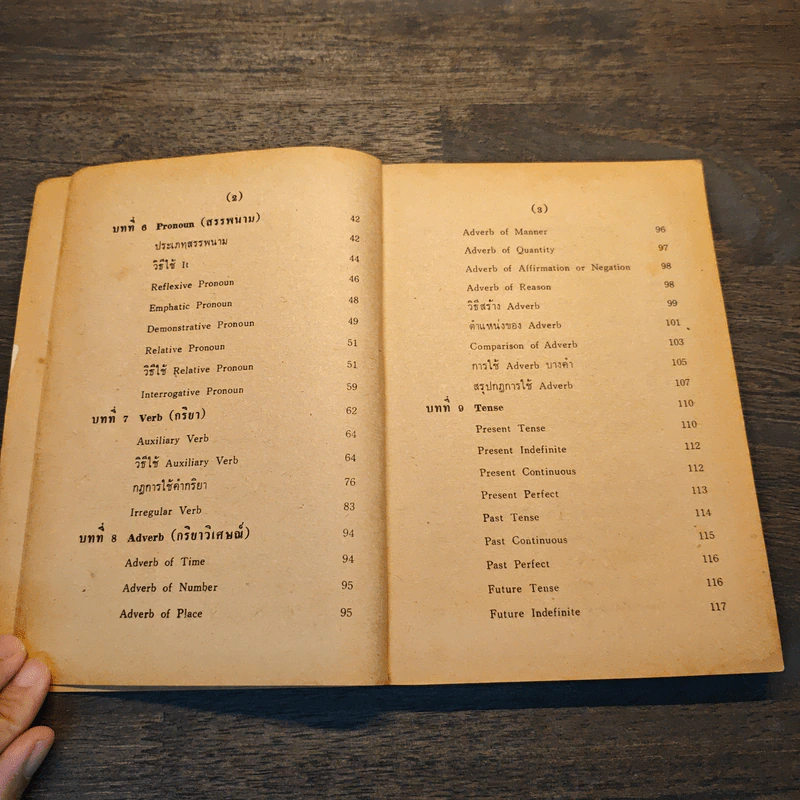 (2)
บทที่ 6 Pronoun (สรรพนาม) 42
ประเภทสรรพนาม 42
วิธีใช้ It 44
Reflexive Pronoun 46
Emphatic Pronoun 48
Demonstrative Pronoun 49
Relative Pronoun 51
วิธีใช้ Relative Pronoun 51
Interrogative Pronoun 59
บทที่ 7 Verb (กริยา) 62
Auxiliary Verb 64
วิธีใช้ Auxiliary Verb 64
กฎการใช้คำกริยา 76
Irregular Verb 83
บทที่ 8 Adverb (กริยาวิเศษณ์) 94
Adverb of Time 94
Adverb of Number 95
Adverb of Place 95
(3)
Adverb of Manner 96
Adverb of Quantity 97
Adverb of Affirmation or Negation 98
Adverb of Reason 98
วิธีสร้าง Adverb 99
ตำแหน่งของ Adverb 101
Comparison of Adverb 103
การใช้ Adverb บางคำ 105
สรุปกฎการใช้ Adverb 107
บทที่ 9 Tense 110
Present Tense 110
Present Indefinite 112
Present Continuous 112
Present Perfect 113
Past Tense 114
Past Continuous 115
Past Perfect 116
Future Tense 116
Future Indefinite 117